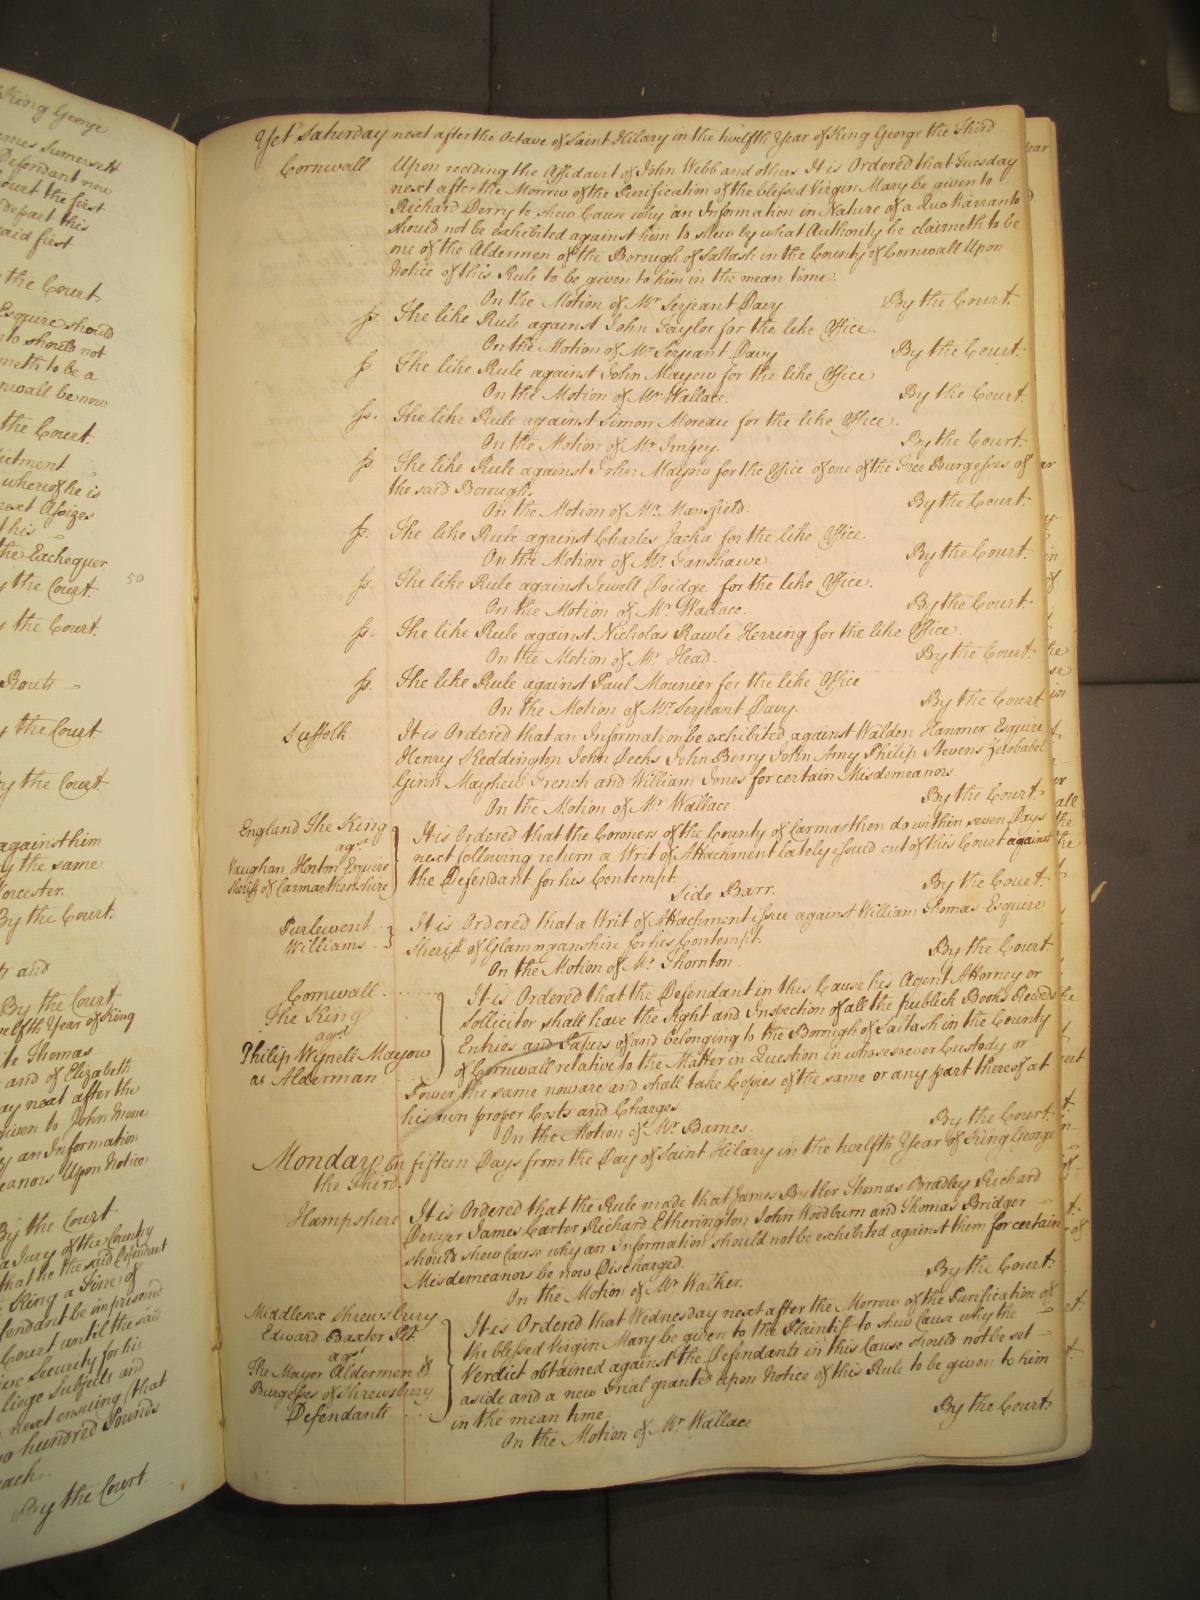 King George
James Somersett
Defendant now
Court the first
depart this
said first
the Court
Esquire should
should not
meth to be a
nwall be now
the Court.
ctment
whereof he is
next Assizes
this
the Exchequer
y the Court.
y the Court.
Routs
y the Court
by the Court
against him
by the same
Worcester.
By the Court.
and
By the Court
twelfth Year of King
Thomas
and of Elizabeth
day next after the
given to John
y an Information
eanors Upon Notice
By the Court
a Jury of the Country
that he the said Defendant
King a Fine of
fendant be imprisoned
Court until the said
ive Security for his
liege Subjects and
next ensuing that
o hundred Pounds
each.
By the Court
50
Yet Saturday next after the Octave of Saint Hilary in the twelfth Year of King George the Third
Cornwall Upon reading the Affidavit of John Webb and others It is Ordered that Tuesday
next after the Morrow of the Purification of the blessed Virgin Mary be given to
Richard Derry to shew Cause why an Information in Nature of a Quo Warranto
should not be exhibited against him to shew by what Authority he claimeth to be
one of the Aldermen of the Borough of Saltash in the County of Cornwall Upon
Notice of this Rule to be given to him in the mean time.
On the Motion of Mr. Serjeant Davy By the Court.
ss. The like Rule against John Taylor for the like Office.
On the Motion of Mr. Serjeant Davy By the Court.
ss. The like Rule against John Mayow for the like Office
On the Motion of Mr. Wallace. By the Court.
ss. The like Rule against Simon Moreau for the like Office.
On the Motion of Mr. Impey. By the Court.
ss. The like Rule against John Mayow for the Office of one of the Free Burgesses of
the said Borough.
On the Motion of Mr. Mansfield. By the Court.
ss. The like Rule against Charles Jacka for the like Office.
On the Motion of Mr. Fanshawe By the Court.
ss. The like Rule against Jewell Doidge for the like Office.
On the Motion of Mr. Wallace. By the Court.
ss. The like Rule against Nicholas Rawle Herring for the like Office.
On the Motion of Mr. Head. By the Court.
ss. The like Rule against Paul Mounier for the like Office
On the Motion of Mr. Serjeant Davy. By the Court
Suffolk It is Ordered that an Information be exhibited against Walden Hanmer Esquire
Henry Reddington John Deeks John Berry John Amy Philip Stevens Zerobabel
Ginn French and William Jones for certain Misdemeanors.
On the Motion of Mr. Wallace. By the Court
England The King
agst.
Vaughan Horton Esquire
Sheriff of Carmarthenshire
It is Ordered that the Coroners of the County of Carmarthen do within seven Days
next following return a Writ of Attachment lately issued out of this Court against
the Defendant for his Contempt.
Side Barr. By the Court.
Purlewent
Williams
It is Ordered that a Writ of Attachment issue against William Thomas Esquire
Sheriff of Glamorganshire for his Contempt.
On the Motion of Mr. Thornton. By the Court
Cornwall
The King
agst.
Philip Wynell Mayow
as Alderman
It is Ordered that the Defendant in this Cause his Agent Attorney or
Sollicitor shall have the Sight and Inspection of all the publick Books Records
Entries and Papers of and belonging to the Borough of Saltash in the County
of Cornwall relative to the Matter in Question in whosesoever Custody or
Power the same now are and shall take Copies of the same or any part thereof at
his own proper Costs and Charges
On the Motion of Mr. Barnes. By the Court.
Monday in fifteen Days from the Day of Saint Hilary in the twelfth Year of King George
the Third.
Hampshire It is Ordered that the Rule made that James Butler Thomas Bradley Richard
Denyer James Carter Richard Etherington John Woodburn and Thomas Bridger
should shew Cause why an Information should not be exhibited against them for certain
Misdemeanors be now Discharged.
On the Motion of Mr. Walker. By the Court.
Middlesex Shrewsbury
Edward Baxter Plt.
agst.
The Mayor Aldermen &
Burgesses of Shrewsbury
Defendants
It is Ordered that Wednesday next after the Morrow of the Purification of
the blessed Virgin Mary be given to the Plaintiff to shew Cause why the
Verdict obtained against the Defendants in this Cause should not be set
aside and a new Trial granted upon Notice of this Rule to be given to him
in the mean time
On the Motion of Mr. Wallace By the Court